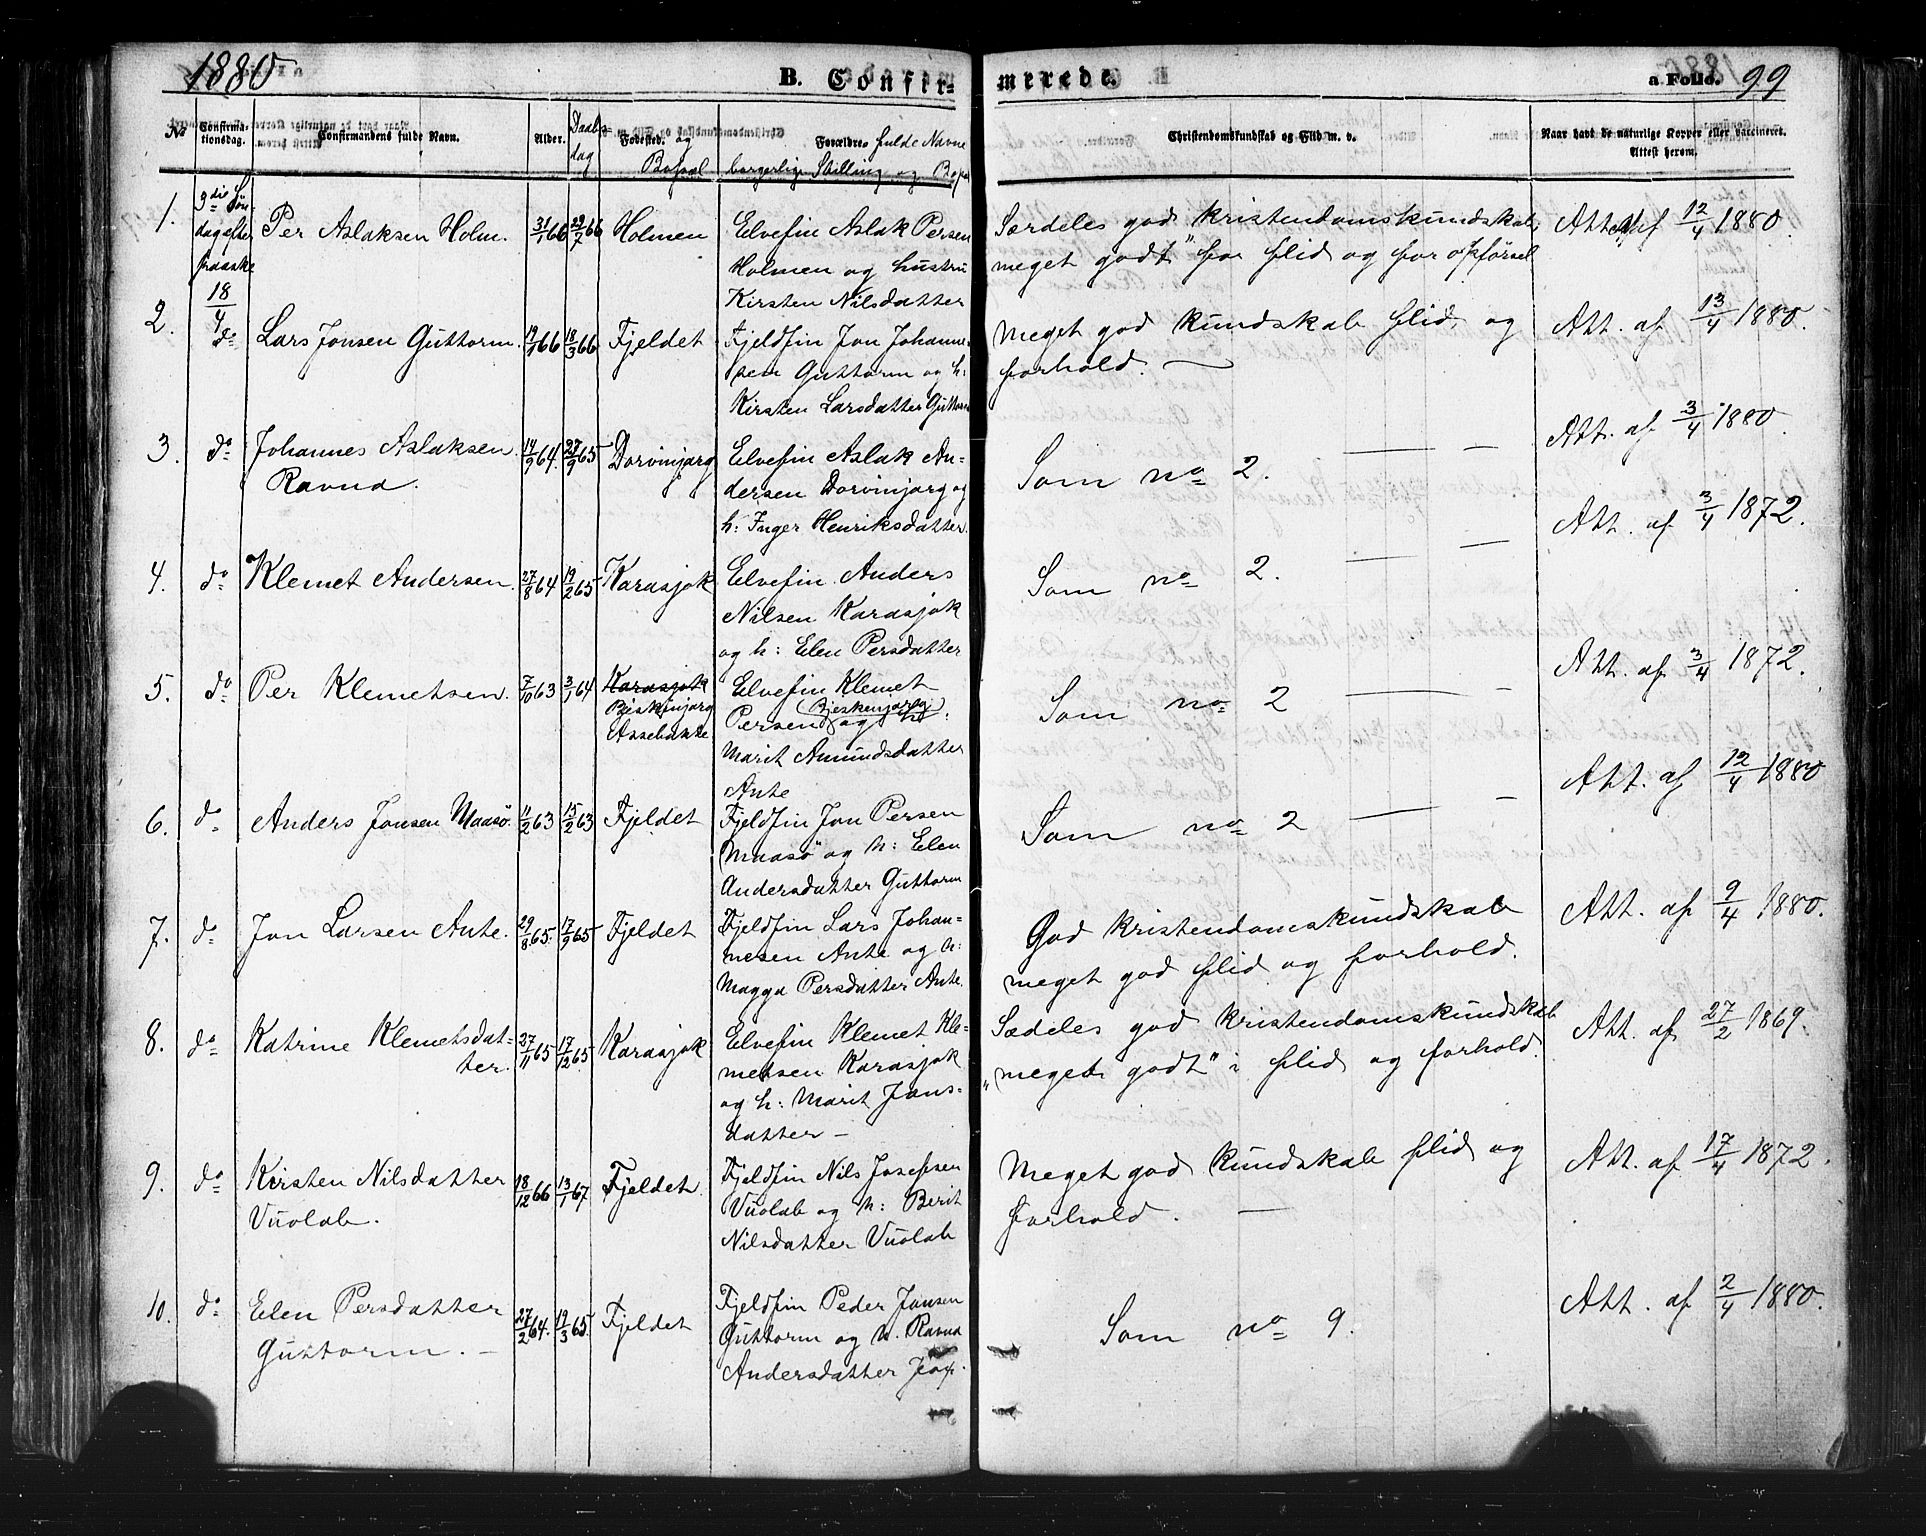 1880
B. Confir-
merede.
a Folio. 99
No
Confirma-
tionsdag.
Confirmandens fulde Navn.
Alder. Daabs-
dag
Fødested. og
Bopæl
Forældres fulde Navne
borgerlige Stilling og Bopæl
Christendomskundskab og Flid m. v.
Naar havt de naturlige Kopper eller vaccineret.
Attest herom.
1. 3die Søn-
dag efter
paaske
18/4
Per Aslaksen Holm. 31/1 66 22/7 66 Holmen
Elvefin Aslak Persen
Holmen og hustru
Kirsten Nilsdatter
Særdeles god kristendomskundskab,
meget godt" for flid og for opførsel
Att af 12/4 1880.
2. do Lars Jonsen Guttorm. 19/1 66 18/3 66 Fjeldet
Fjeldfin Jon Johanne-
sen Guttorm og h:
Kirsten Larsdatter Guttorm
Meget god kundskab flid, og
forhold. —
Att. af 13/4 1880.
3. do Johannes Aslaksen
Ravna.
14/9 64. 27/9 65 Dorvinjarg
Elvefin Aslak An-
dersen Dorvinjarg og
h: Inger Henriksdatter.
Som no 2. — —
Att. af 3/4 1880.
4. do Klemet Andersen. 27/8 64 19/2 65 Karasjok
Elvefin Anders
Nilsen Karasjok
og h: Elen Persdatter
Som no 2. — —
Att. af 3/4 1872.
5. do Per Klemetsen. 7/10 63 3/1 64 Karasjok
Bjeskenjarg
Assebakte
Elvefin Klemet
Persen (Bjeskenjarg) og h:
Marit Amundsdatter
Ante
Som no 2 — -
Att. af 3/4 1872.
6. do Anders Jonsen Maasø. 11/2 63 15/2 63 Fjeldet
Fjeldfin Jon Persen
Maasø og h: Elen
Andersdatter Guttorm
Som no 2 — -
Att. af 12/4 1880
7. do Jon Larsen Ante. 29/8 65. 17/9 65 Fjeldet
Fjeldfin Lars Johan-
nesen Ante og h:
Magga Persdatter Ante.
God kristendomskundskab
meget god flid og forhold.
Att. af 9/4 1880.
8. do Katrine Klemetsdat-
ter. 27/11 65 17/12 65 Karasjok
Elvefin Klemet Kle-
metsen Karasjok
og h: Marit Jons-
datter —
Sædeles god kristendomskundskab
„meget godt" i flid og forhold.
Att. af 27/2 1869.
9. do Kirsten Nilsdatter
Vuolab.
18/12 66 13/1 67 Fjeldet.
Fjeldfin Nils Josefsen
Vuolab og h: Berit
Nilsdatter Vuolab
Meget god kundskab flid og
forhold. —
Att. af 17/4 1872.
10. do Elen Persdatter
Guttorm. —
27/2 64. 19/3 65. Fjeldet
Fjeldfin Peder Jonsen
Guttorm og h. Ravna
Andersdatter
Som no 9.
Att. af 2/4 1880.